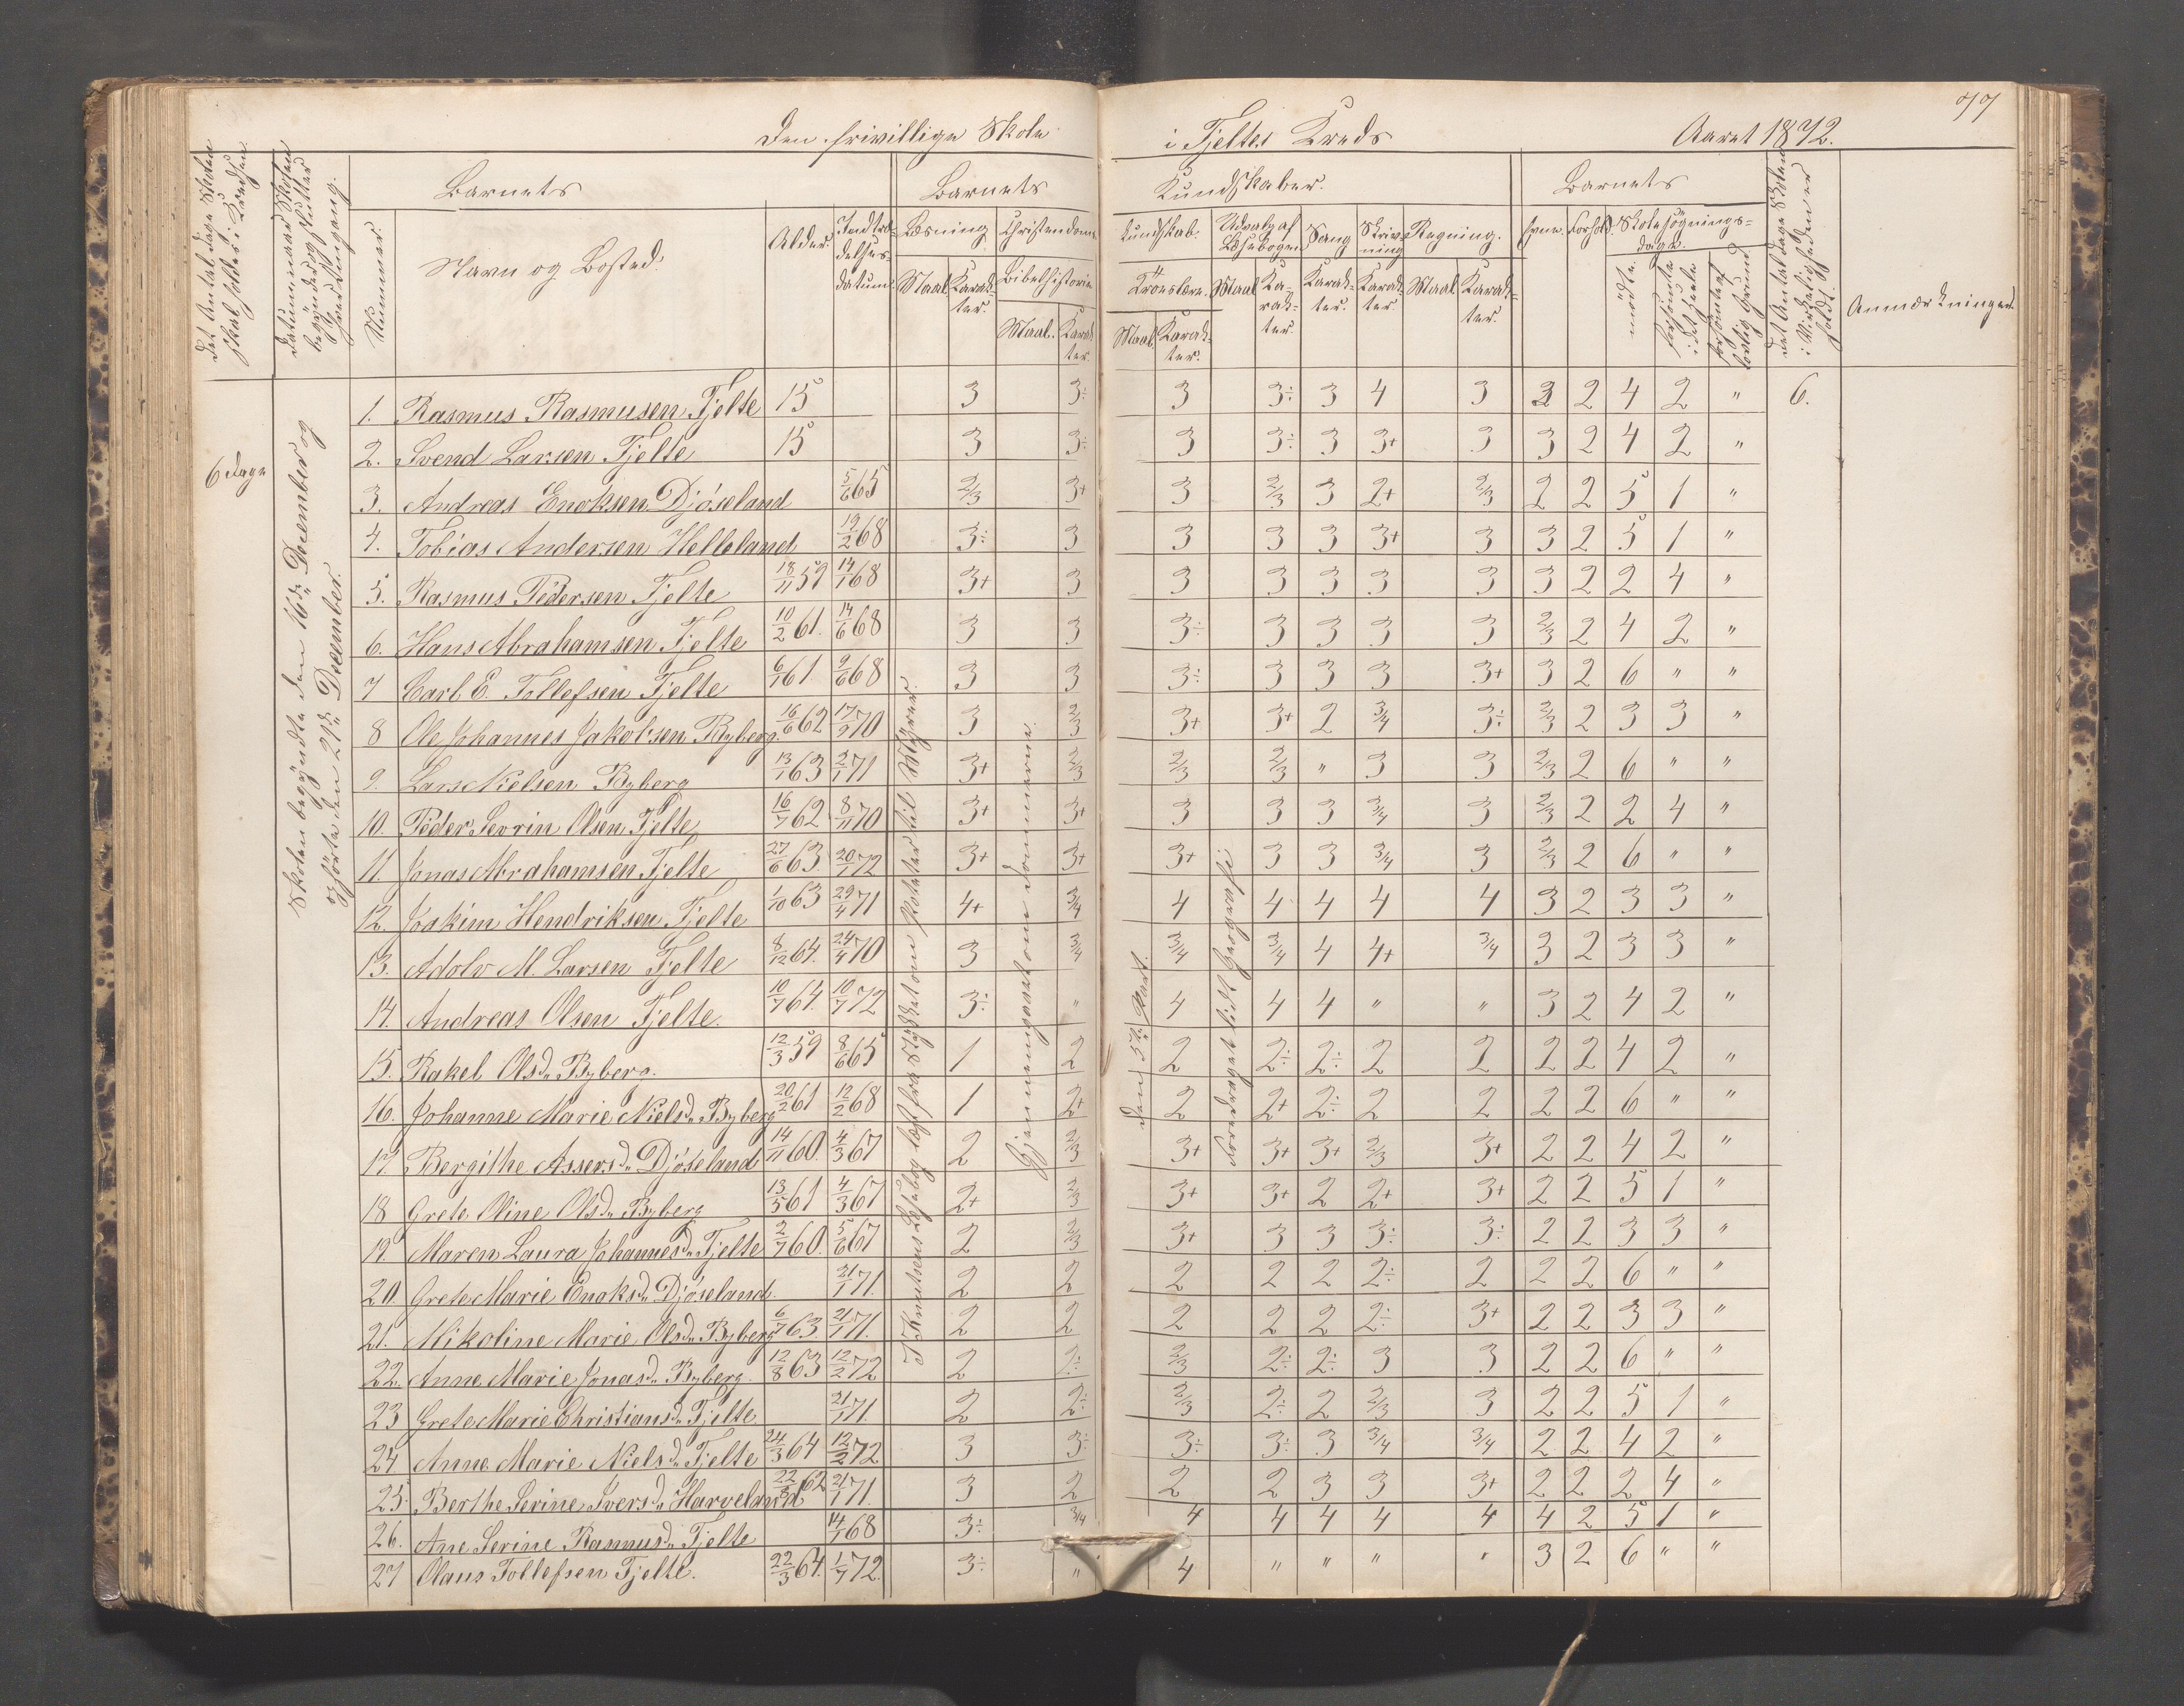 77
Den frivillige Skole i Fjeltes Kreds Aaret 1872.
Det Antal Dage Skolen skal holdes i Kredsen.
Datum naar Skolen begynder og slutter hver Omgang.
Barnets
Nummer.
Navn og Bosted.
Alder.
Indtrædelses-datum.
Barnets Kundskaber.
Læsning
Maal
Karakter.
Christendoms-kundskab.
Bibelhistorie
Maal.
Karakter.
Troeslære.
Maal.
Karakter.
Udvalg af Læsebogen
Maal
Karakter.
Sang
Karakter.
Skrivning
Karakter.
Regning.
Maal
Karakter.
Barnets
Evne.
Forhold.
Skolesøgnings-dage.
mødte.
forsømte i det hele
forsømte af lovlig Grund
Det Antal Dage Skolen i Virkeligheden er holdt.
Anmærkninger.
6 Dage
Skolen begyndte den 16de December og
ophørte den 21de December.
T Knudsens Læsebog læst fra Stykket om Poteter til Myrer.
Gjennemgaaet om Dommerne.
den 5te Part.
Foredraget lidt Geografi.
1. Rasmus Rasmusen Fjelte 15 3 3÷ 3 3÷ 3 4 3 3 2 4 2 " 6.
2. Svend Larsen Fjelte 15 3 3÷ 3 3÷ 3 3+ 3 3 2 4 2 "
3. Andreas Enoksen Djöseland 5/6 65 2/3 3+ 3 2/3 3 2+ 2/3 2 2 5 1 "
4. Tobias Andersen Helleland 19/2 68 3÷ 3 3 3 3 3+ 3 3 2 5 1 "
5. Rasmus Pedersen Fjelte 18/11 59 14/1 68 3+ 3 3 3 3 3 3 3 2 2 4 "
6. Hans Abrahamsen Fjelte 10/2 61. 14/6 68 3 3 3÷ 3 3 3 3 2/3 2 4 2 "
7 Carl E. Tollefsen Fjelte 6/1 61. 9/6 68 3 3 3÷ 3 3 3 3+ 3 2 6 " "
8 Ole Johannes Jakobsen Byberg 16/6 62 17/2 70 3 2/3 3+ 3+ 2 3/4 3÷ 2/3 2 3 3 "
9. Lars Nielsen Byberg 13/1 63 2/1 71 3+ 2/3 2/3 2/3 " 3 3 2/3 2 6 " "
10. Peder Sevrin Olsen Fjelte 16/7 62 8/11 70 3+ 3+ 3 3 3 3/4 3 2/3 2 2 4 "
11. Jonas Abrahamsen Fjelte 27/6 63. 20/1 72 3+ 3+ 3+ 3 3 3/4 3 2/3 2 6 " "
12. Joakim Hendriksen Fjelte 1/10 63 29/4 71 4+ 3/4 4 4 4 4 4 3 2 3 3 "
13. Adolv M. Larsen Fjelte 8/12 64. 24/4 70 3 3/4 3/4 3/4 4 4+ 3/4 3 2 3 3 "
14. Andreas Olsen Fjelte. 10/7 64. 10/7 72 3÷ " 4 4 4 " " 3 2 4 2 "
15. Rakel Olsd. Byberg. 12/3 59 8/6 65 1 2 2 2÷ 2÷ 2 2 2 2 4 2 "
16. Johanne Marie Nielsd. Byberg 20/2 61 12/2 68 1 2+ 2 2+ 2÷ 2 2 2 2 6 " "
17 Bergithe Assersd. Djöseland 14/11 60. 4/3 67 2 2/3 3+ 3+ 3+ 2/3 3+ 2 2 4 2 "
18 Grete Oline Olsd. Byberg 13/5 61 4/3 67 2+ 2/3 3+ 3+ 2 2+ 3+ 2 2 5 1 "
19. Maren Laura Johannesd. Fjelte 2/7 60. 5/6 67 2 2/3 3+ 3 3 3÷ 3÷ 2 2 3 3 "
20. Grete Marie Enoksd. Djöseland. 21/1 71. 2 2 2 2 2 2÷ 2 2 2 6 " "
21. Nikoline Marie Olsd. Byberg 6/7 63. 21/1 71. 2 2 2 2 2 2÷ 3+ 2 2 3 3 "
22. Anne Marie Jonasd. Byberg. 12/8 63 12/2 72 2 2÷ 2/3 2÷ 2÷ 3 3 2 2 6 " "
23 Grete Marie Christiansd. Fjelte. 21/1 71. 2 2÷ 2/3 2÷ 2 2/3 3 2 2 5 1 "
24. Anne Marie Nielsd. Fjelte 24/3 64 12/2 72 3 3÷ 3÷ 3÷ 3 3/4 3/4 2 2 4 2 "
25. Berthe Serine Iversd. Harveland 22/8 62 21/1 71. 3 2 2 2 3 3 3+ 2 2 2 4 "
26. Ane Serine Rasmusd. Fjelte 14/1 68 3÷ 3/4 4 4 4 4 4 4 2 5 1 "
27 Olaus Tollefsen Fjelte. 22/3 64. 1/7 72. 3÷ " 4 " " " " 3 2 6 " "